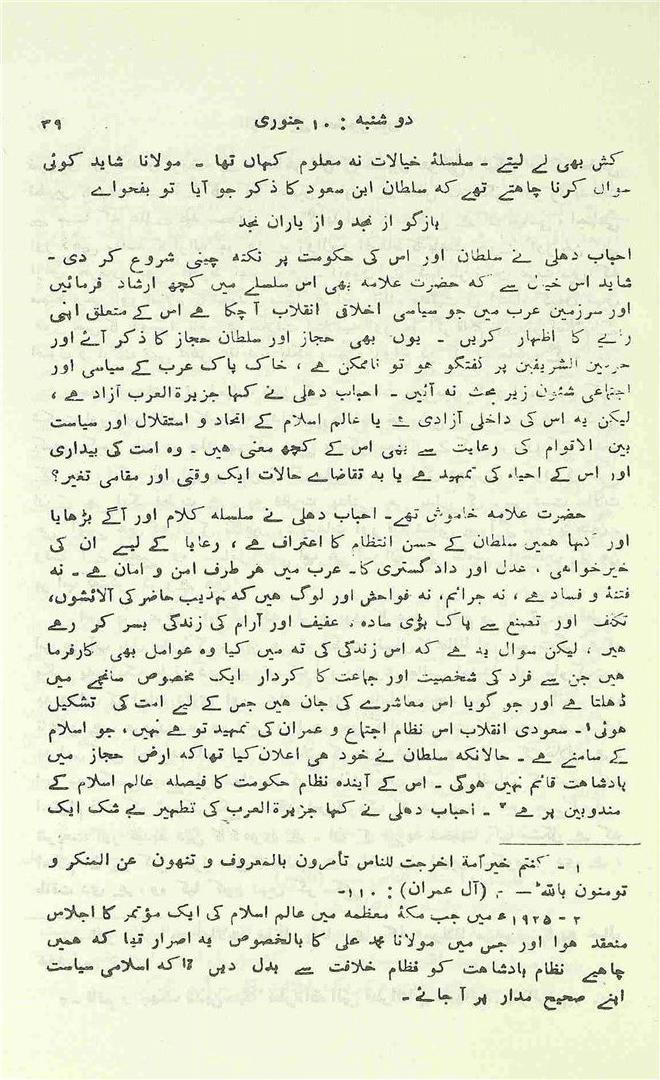 دو شنبہ : ۱۰ جنوری ۳۹
کش بھی لے لیتے ۔ سلسلۂ خیالات نہ معلوم کہاں تھا ۔ مولانا شاید کوئی
سوال کرنا چاہتے تھے کہ سلطان ابن سعود کا ذکر جو آیا تو بفحواے
بازگو از نجد و از یاران نجد
احباب دھلی نے سلطان اور اس کی حکومت پر نکتہ چینی شروع کر دی ۔
شاید اس خیال سے کہ حضرت علامہ بھی اس سلسلے میں کچھ ارشاد فرمائیں
اور سرزمین عرب میں جو سیاسی اخلاقی انقلاب آ چکا ہے اس کے متعلق اپنی
رایے کا اظہار کریں ۔ یوں بھی حجاز اور سلطان حجاز کا ذکر آئے اور
حرمین الشریفین پر گفتگو ھو تو ناممکن ہے ، خاک پاک عرب کے سیاسی اور
اجتماعی شئون زیر بحث نہ آئیں ۔ احباب دھلی نے کہا جزیرۃ العرب آزاد ہے ،
لیکن یہ اس کی داخلی آزادی ہے یا عالم اسلام کے اتحاد و استقلال اور سیاست
بین الاقوام کی رعایت سے بھی اس کے کچھ معنی ھیں ۔ وہ امت کی بیداری
اور اس کے احیاء کی تمہید ہے یا بہ تقاضاے حالات ایک وقتی اور مقامی تغیر؟
حضرت علامہ خاموش تھے ۔ احباب دھلی نے سلسلہ کلام اور آگے بڑھایا
اور کہا ھمیں سلطان کے حسن انتظام کا اعتراف ہے ، رعایا کے لیے ان کی
خیر خواھی ، عدل اور داد گستری کا ۔ عرب میں ھر طرف امن و امان ہے ۔ نہ
فتنہ و فساد ہے ، نہ جرائم، نہ فواحش اور لوگ ھیں کہ تہذیب حاضر کی آلائشوں،
تکلف اور تصنع سے پاک بڑی سادہ ، عفیف اور آرام کی زندگی بسر کر رہے
ھیں ، لیکن سوال یہ ہے کہ اس زندگی کی تہ میں کیا وہ عوامل بھی کارفرما
ھیں جن سے فرد کی شخصیت اور جماعت کا کردار ایک مخصوص سانچے میں
ڈھلتا ہے اور جو گویا اس معاشرے کی جان ھیں جس کے لیے امت کی تشکیل
ھوئی۱ ۔ سعودی انقلاب اس نظام اجتماع و عمران کی تمہید تو ہے نہیں ، جو اسلام
کے سامنے ہے ۔ حالانکہ سلطان نے خود ھی اعلان کیا تھا کہ ارض حجاز میں
بادشاھت قائم نہیں ھوگی ۔ اس کے آیندہ نظام حکومت کا فیصلہ عالم اسلام کے
مندوبین پر ہے۲ ۔ احباب دھلی نے کہا جزیرۃ العرب کی تطہیر بے شک ایک
۱ - کنتم خیر امة اخرجت للناس تأمرون بالمعروف و تنہون عن المنکر و
تومنون باللہ ۳ (آل عمران) : ۱۱۰-
۲ - ۱۹۲۵ء میں جب مکۂ معظمہ میں عالم اسلام کی ایک مؤتمر کا اجلاس
منعقد ھوا اور جس میں مولانا محمد علی کا بالخصوص یہ اصرار تھا کہ ھمیں
چاھیے نظام بادشاھت کو نظام خلافت سے بدل دیں تاکہ اسلامی سیاست
اپنے صحیح مدار پر آ جائے ۔